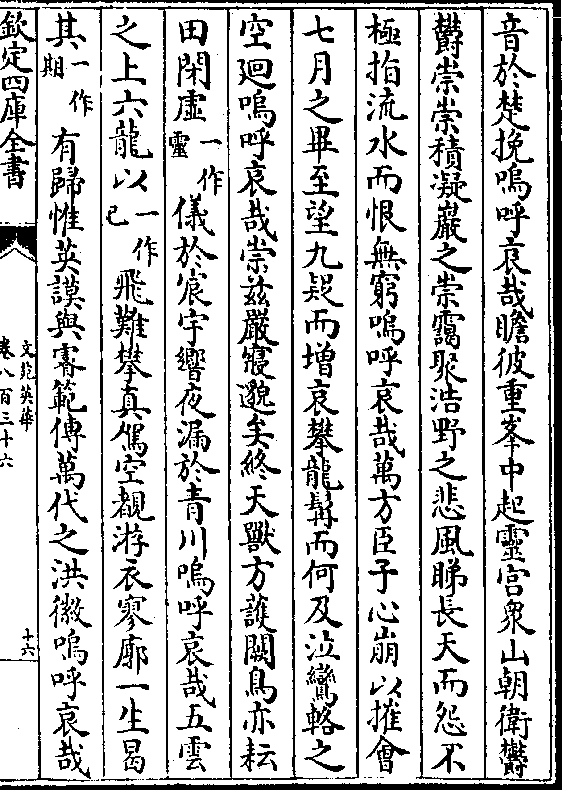 音於楚挽嗚呼哀哉瞻彼重峯中起靈宫衆山朝衛欝
欝崇崇積凝巖之崇靄聚浩野之悲風睇長天而怨不
極指流水而恨無窮嗚呼哀哉萬方臣子心崩以摧會
七月之畢至望九疑而增哀攀龍髯而何及泣鸞輅之
空廻嗚呼哀哉崇兹嚴寢邈矣終天獸方護闕鳥亦耘
田閑虚一作靈儀於宸宇響夜漏於青川嗚呼哀哉五雲
之上六龍以一作已飛難攀真馭空覩游衣寥廓一生曷
其一作期有歸惟英謨與睿範傳萬代之洪徽嗚呼哀哉
欽定四庫全書
文苑英華
卷八百三十六
十六